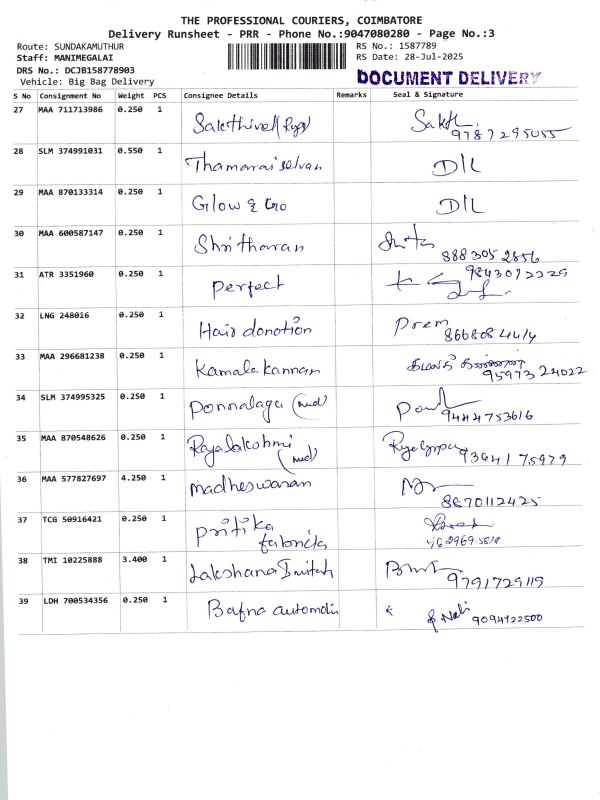 THE PROFESSIONAL COURIERS, COIMBATORE
Delivery Runsheet - PRR - Phone No.:9047080280 - Page No.:3
Route: SUNDAKAMUTHUR RS No.: 1587789
Staff: MANIMEGALAI RS Date: 28-Jul-2025
DRS No.: DCJB158778903
Vehicle: Big Bag Delivery DOCUMENT DELIVERY
S No Consignment No Weight PCS Consignee Details Remarks Seal & Signature
27 MAA 711713986 0.250 1 Sakthivel
28 SLM 374991031 0.550 1 Thamaraiselvan D/L
29 MAA 870133314 0.250 1 Glow & Gro D/L
30 MAA 600587147 0.250 1 Shritharan
888305 2856
31 ATR 3351960 0.250 1 Perfect
32 LNG 248016 0.250 1 Hair donotion Prem
33 MAA 296681238 0.250 1 Kamala kannan
95973 24022
34 SLM 374995325 0.250 1 Ponnalaga (med)
9444753616
35 MAA 870548626 0.250 1 Rajalakshmi
(med) 93641 75979
36 MAA 577827697 4.250 1 madheswaran
8870112425
37 TCG 50916421 0.250 1 Pritika
38 TMI 10225888 3.400 1 Lakshana
9791729119
39 LDH 700534356 0.250 1 Bafna
9094122500